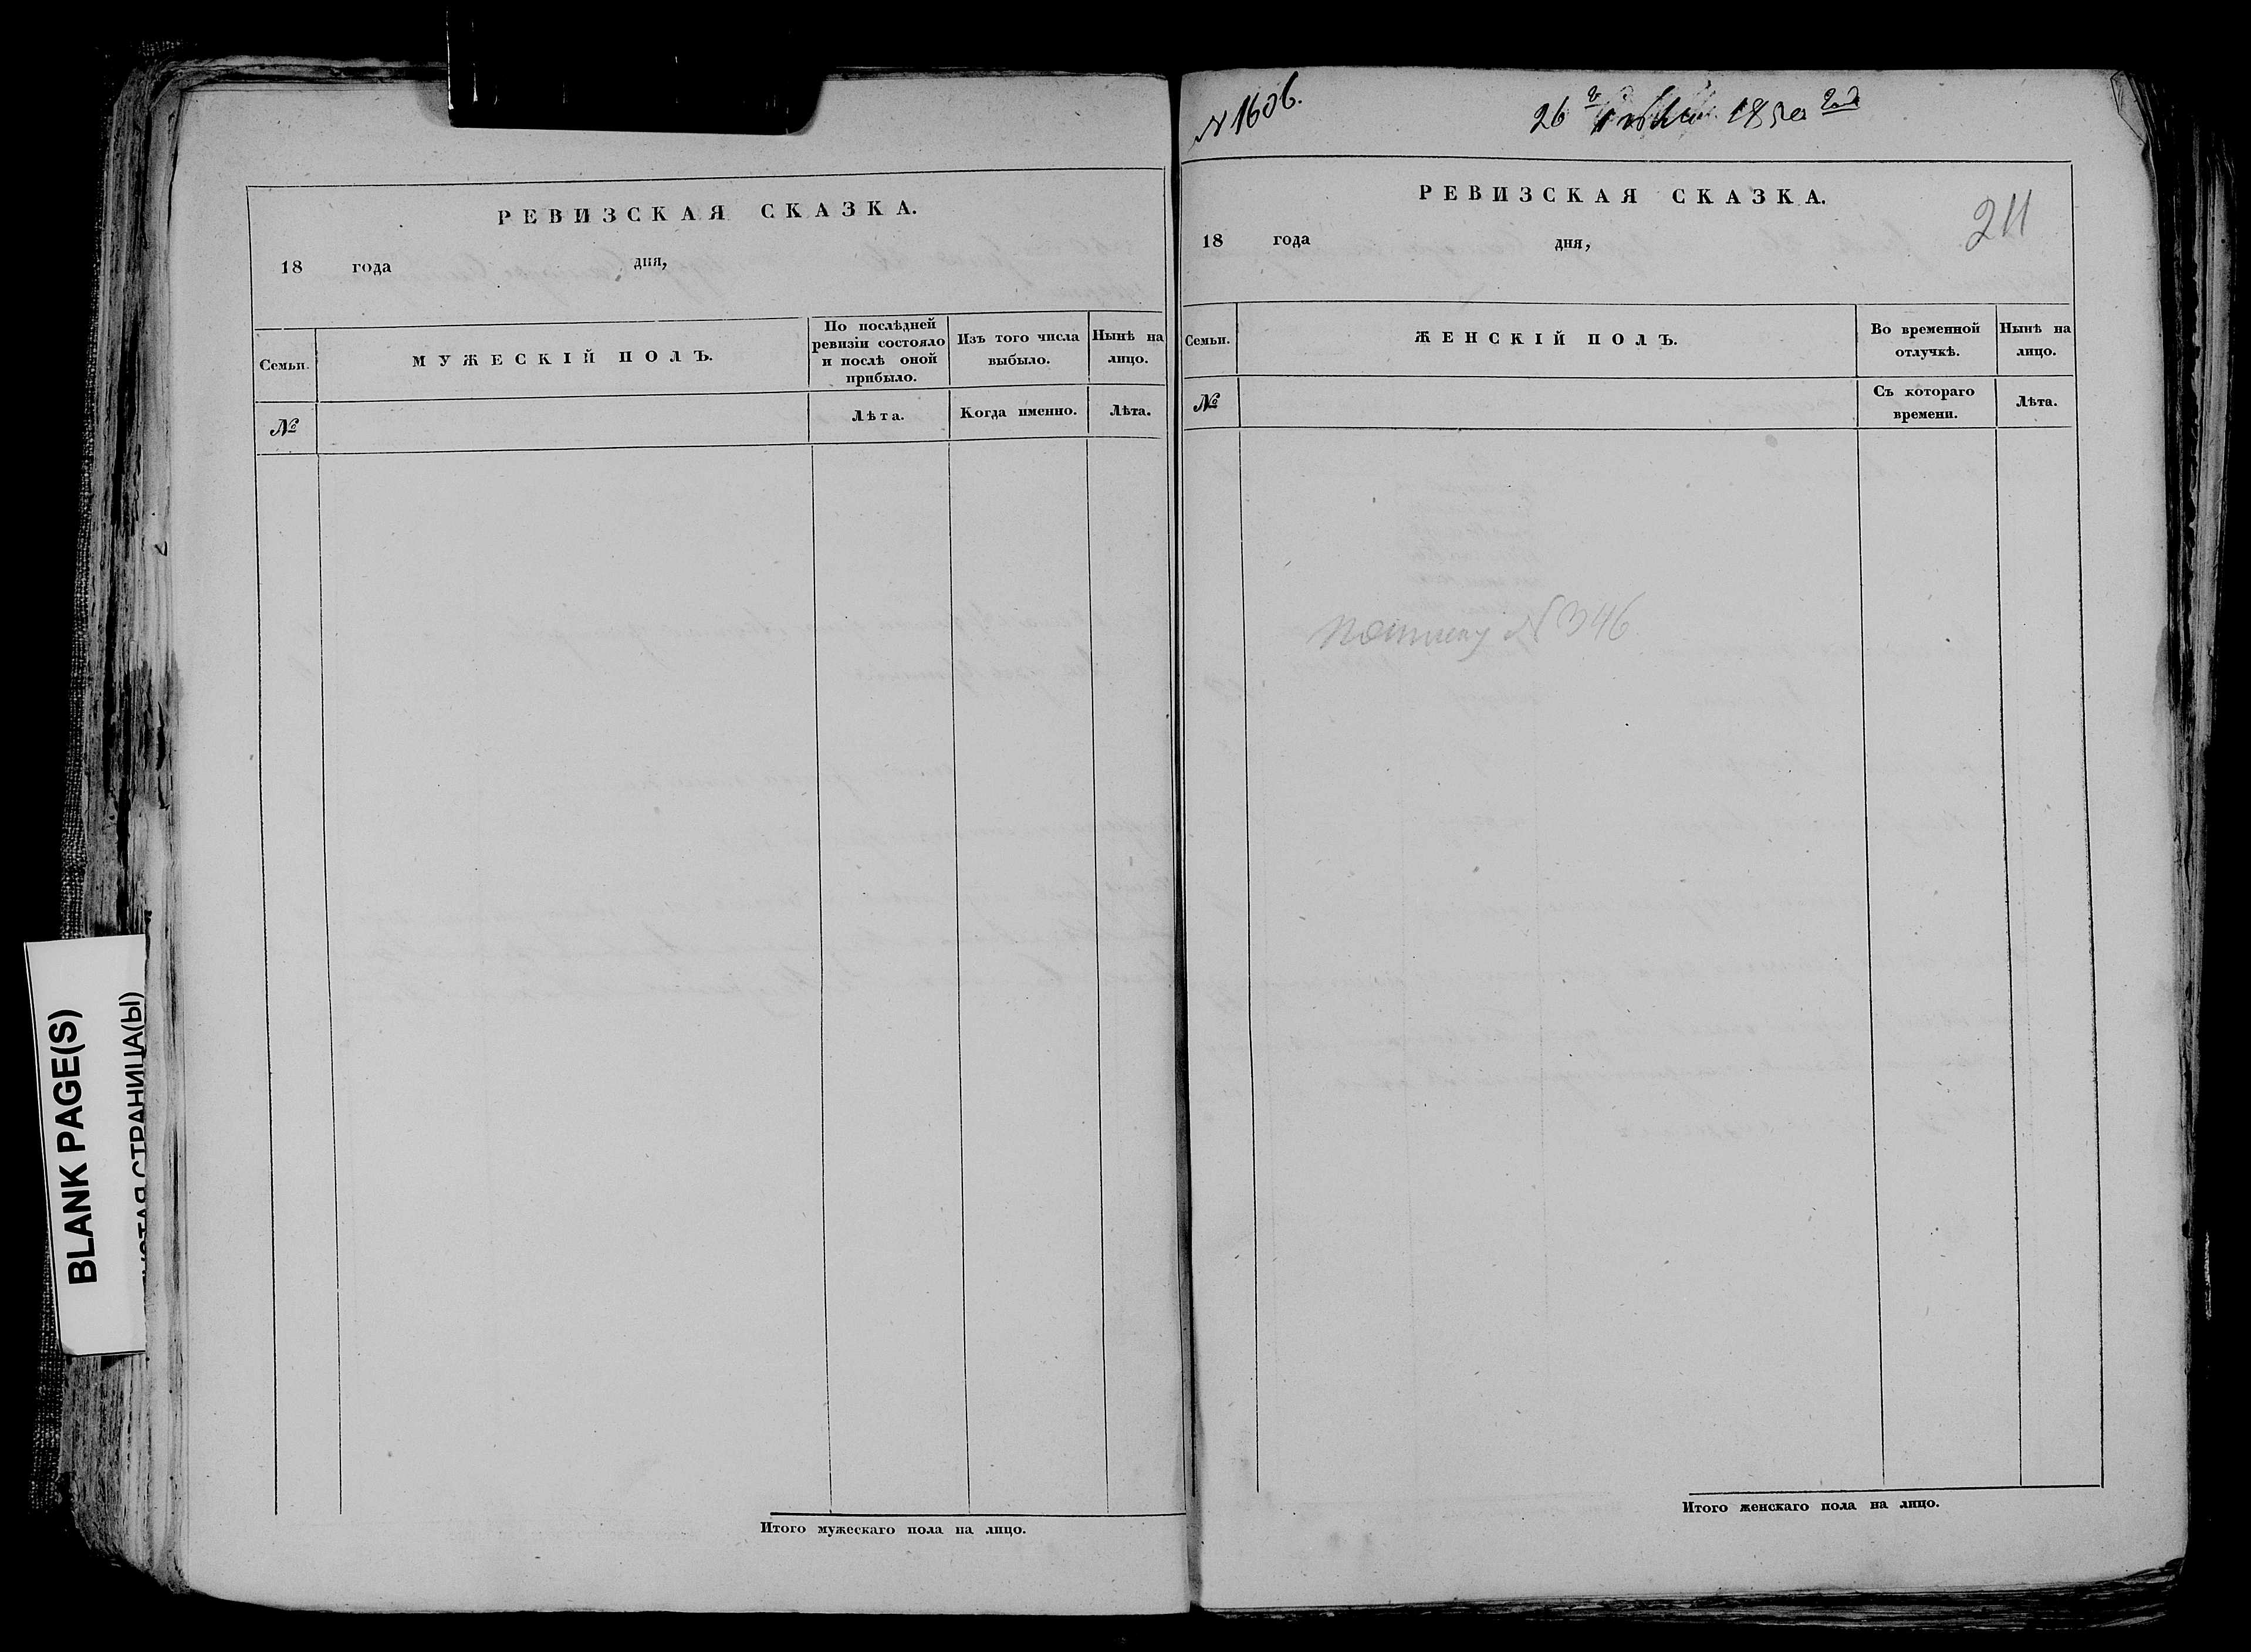 BLANK PAGE(S)
СТРАНИЦА(Ы)
РЕВИЗСКАЯ СКАЗКА.
18 года дня,
Семьи.
МУЖЕСКІЙ ПОЛЪ.
По послѣдней
ревизіи состояло
и послѣ оной
прибыло.
Изъ того числа
выбыло.
Нынѣ на
лицо.
№
Лѣта.
Когда именно.
Лѣта.
Итого мужескаго пола на лицо.
N 1606.
26 185 года
РЕВИЗСКАЯ СКАЗКА.
211
18 года дня,
Семьи.
ЖЕНСКІЙ ПОЛЪ.
Во временной
отлучкѣ.
Нынѣ на
лицо.
№
Съ котораго
времени.
Лѣта.
N 346
Итого женскаго пола на лицо.